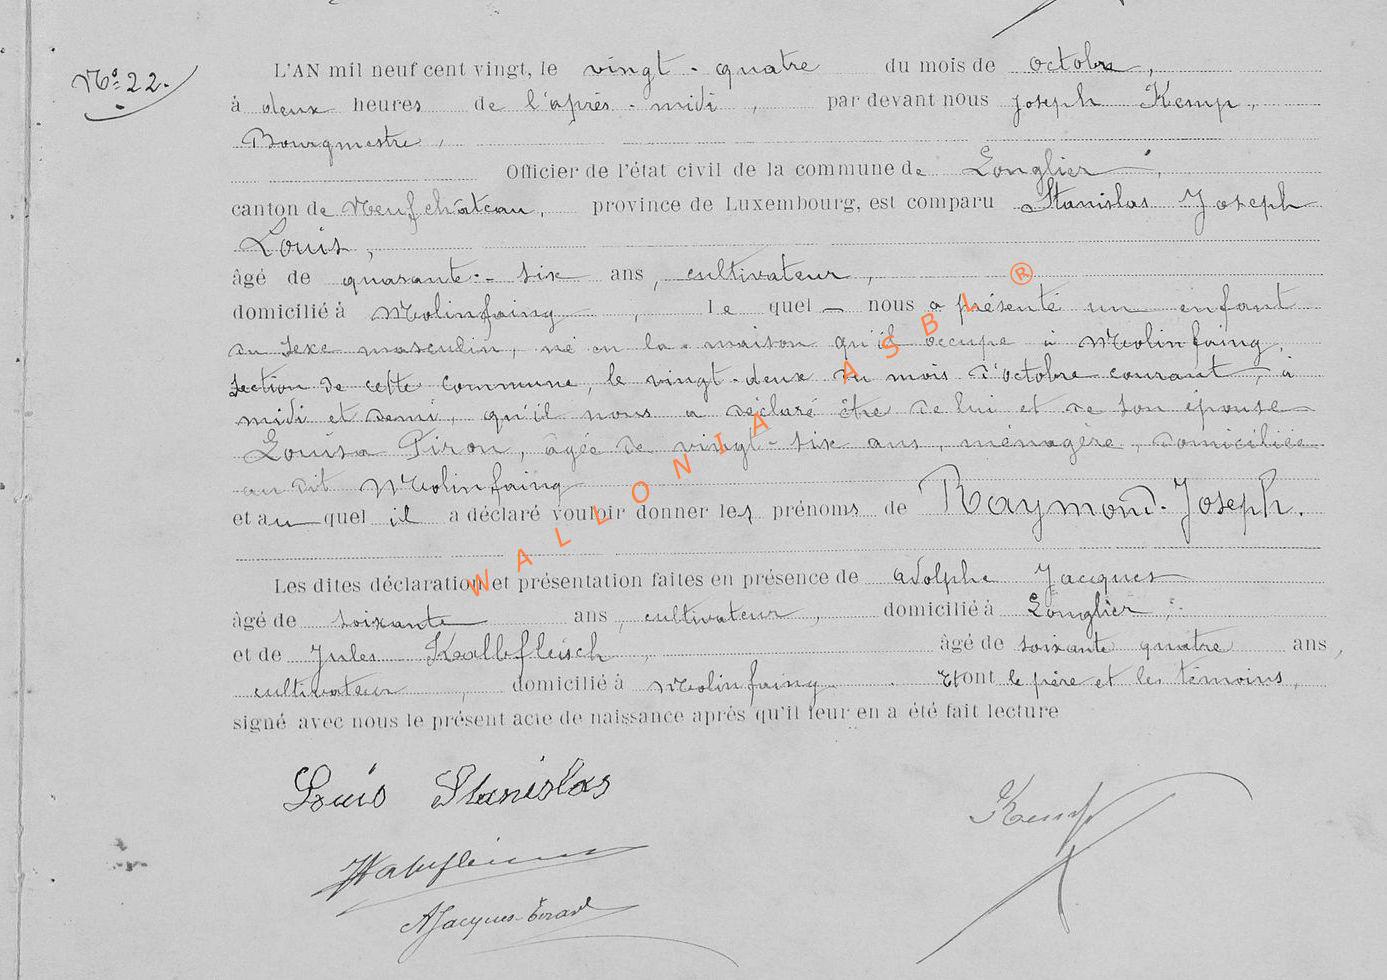 N° 22.
L'AN mil neuf cent vingt, le vingt-quatre du mois de octobre,
à deux heures de l'après-midi, par devant nous Joseph Kemp,
Bourgmestre,
Officier de l'état civil de la commune de Longlier,
canton de Neufchâteau, province de Luxembourg, est comparu Stanislas Joseph
Louis,
âgé de quarante-six ans, cultivateur,
domicilié à Molinfaing, le quel nous a présenté un enfant
du sexe masculin, né en la maison qu'il occupe à Molinfaing,
section de cette commune, le vingt-deux du mois d'octobre courant, à
midi et demi, qu'il nous a déclaré être de lui et de son épouse
Louisa Piron, âgée de vingt-six ans, ménagère, domiciliée
au dit Molinfaing
et au quel il a déclaré vouloir donner les prénoms de Raymond-Joseph.
Les dites déclaration et présentation faites en présence de Adolphe Jacques
âgé de soixante ans, cultivateur, domicilié à Longlier,
et de Jules Kalbfleisch, âgé de soixante quatre ans,
cultivateur, domicilié à Molinfaing. Et ont le père et les témoins,
signé avec nous le présent acte de naissance après qu'il leur en a été fait lecture
Louis Stanislas
Kemp
AJacques-
WALLONIA ASBL ®